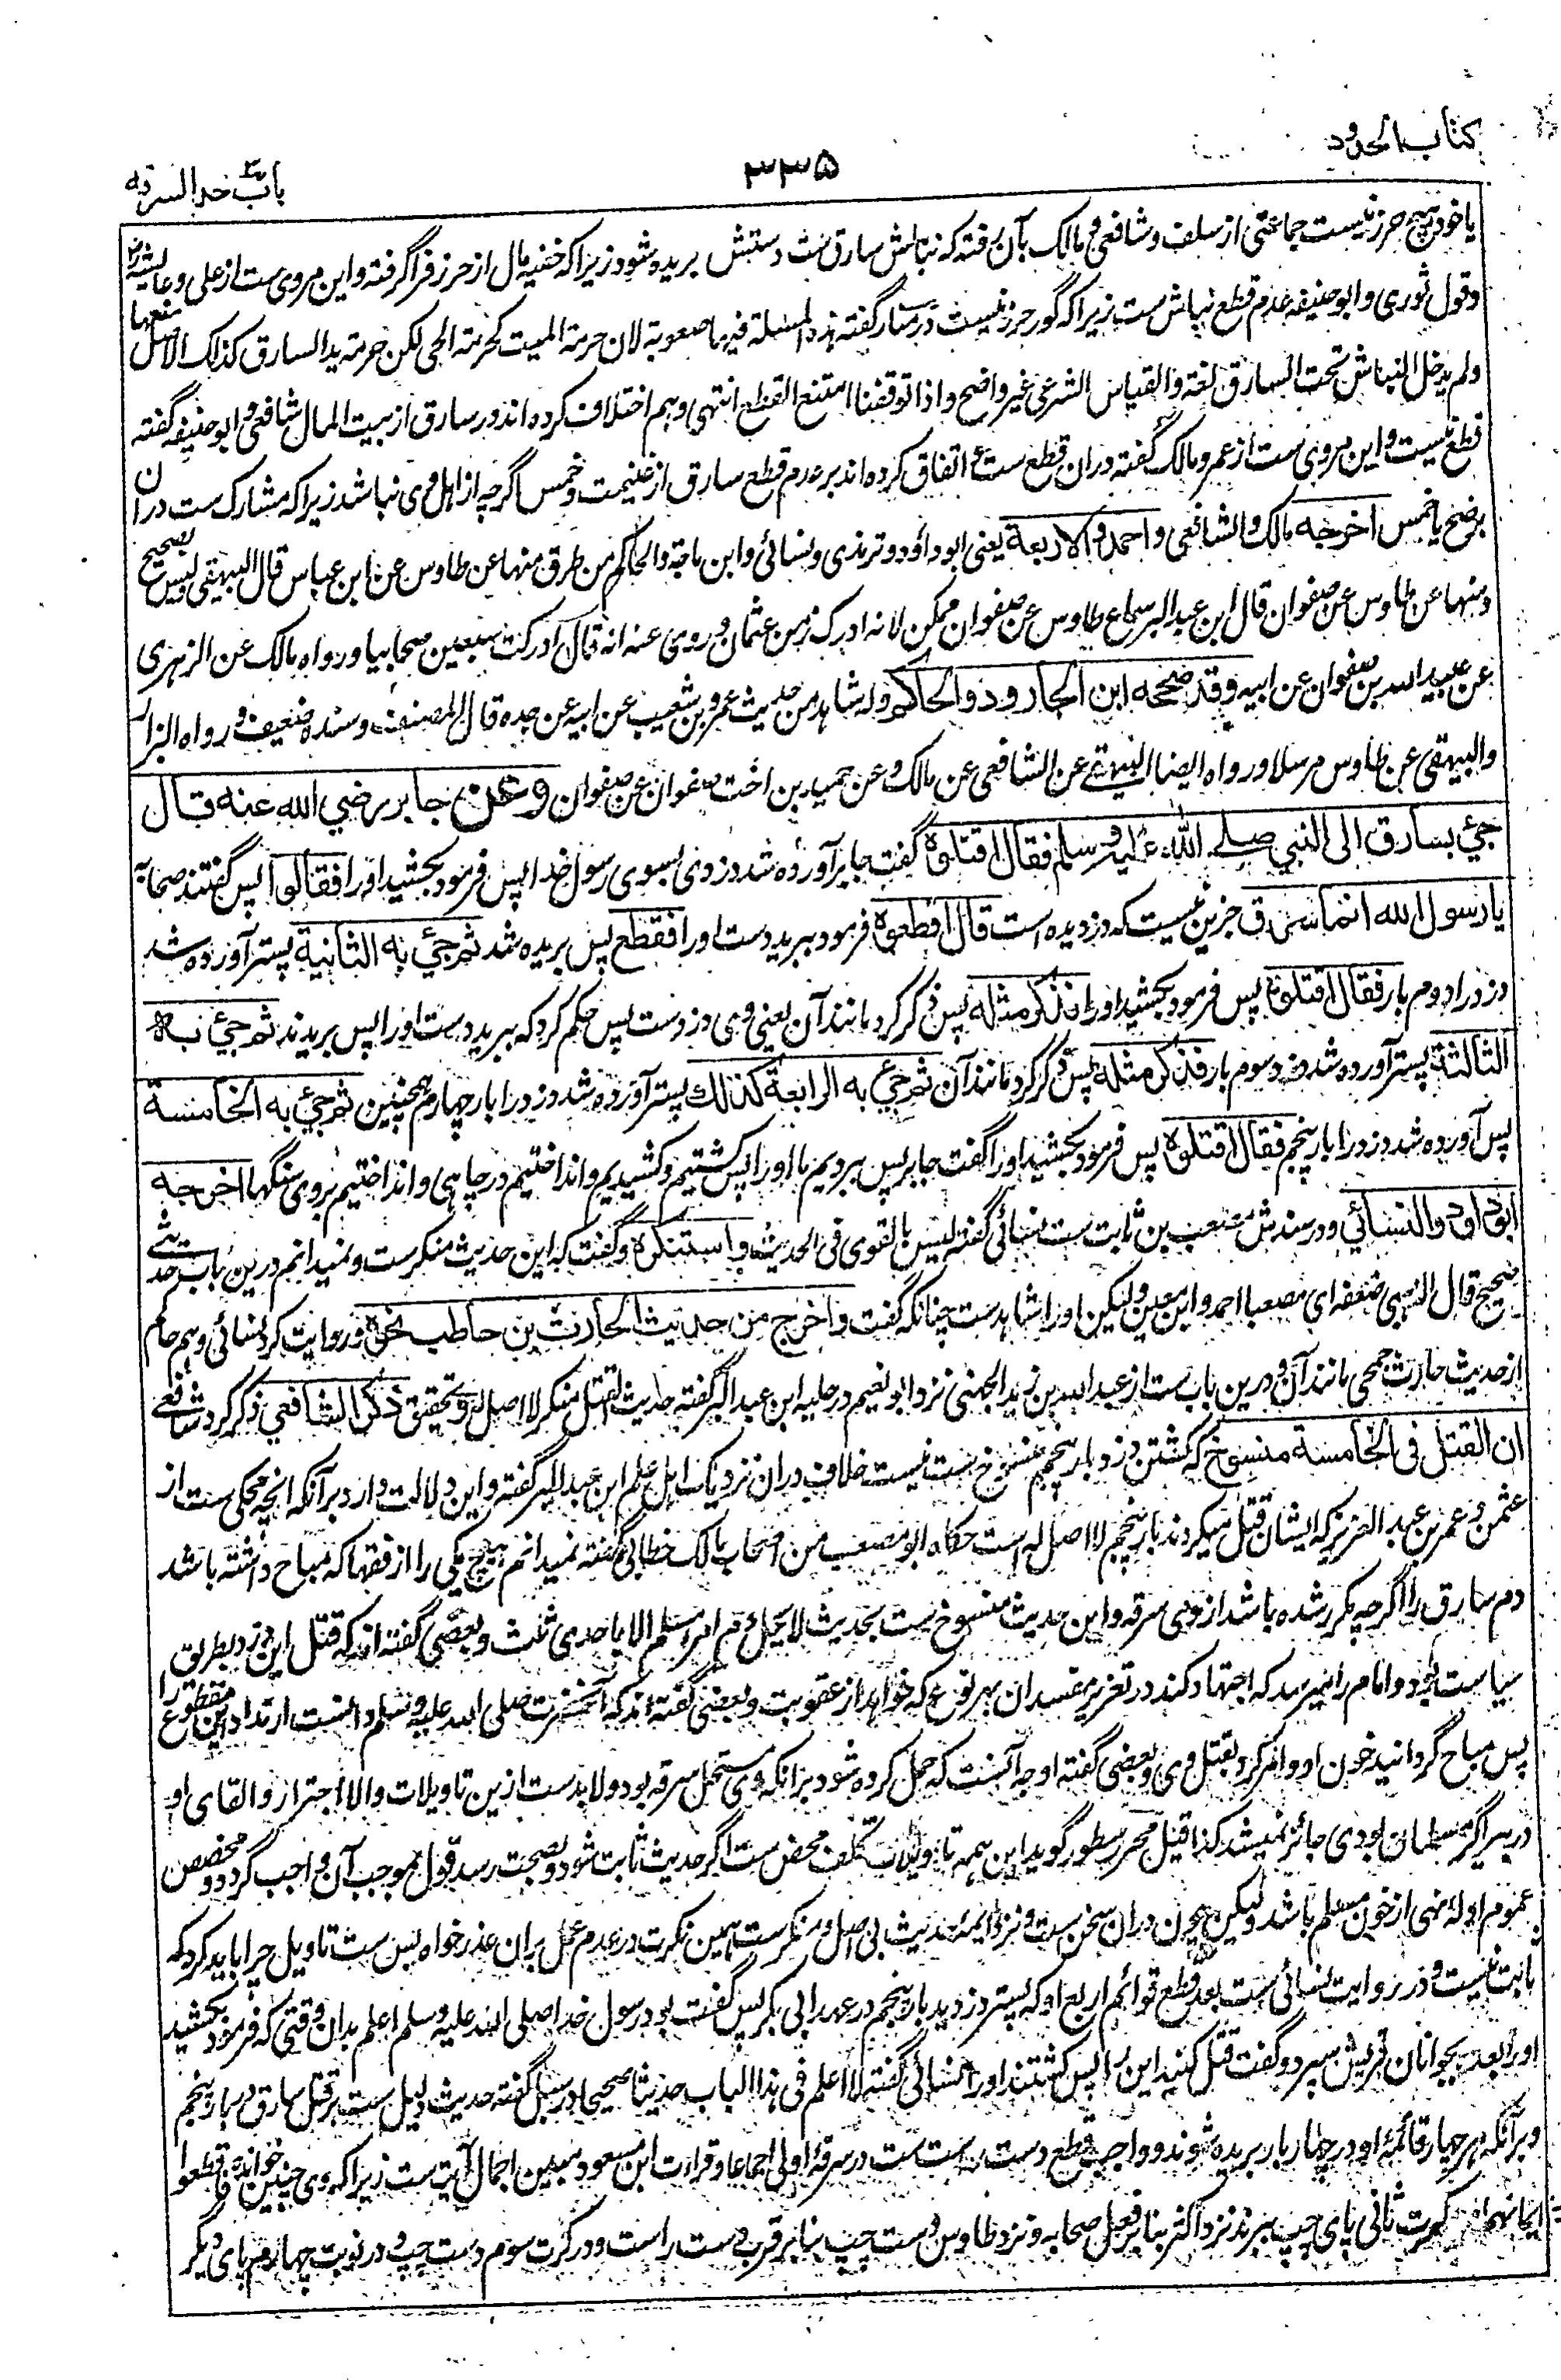 کتاب الحدود
۳۳۵
باب حد السرقه
یا خود هیچ حرز نیست جماعتی از سلف و شافعی و مالک بآن رفته که نباش سارق ست دستش بریده شود زیرا که خفیه مال از حرز فرا گرفته و این مروی ست از علی و عایشه
و قول ثوری و ابو حنیفه عدم قطع نباش ست زیرا که گور حرز نیست در منار گفته هذه المسئلة فیها صعوبة لان حرمة المیت کحرمة الحی لکن حرمة ید السارق کذلک الاصل منعها
ولم یدخل النباش تحت السارق لغة والقیاس الشرعی غیر واضح واذا توقفنا امتنع القطع انتهی و هم اختلاف کرده اند در سارق از بیت المال شافعی و ابو حنیفه گفته
قطع نیست و این مروی ست از عمر و مالک گفته دران قطع ست و اتفاق کرده اند بر عدم قطع سارق از غنیمت و خمس اگرچه از اهل وی نباشد زیرا که مشارک ست دران
برضخ یا خمس اخرجه مالک والشافعی و احمد والاربعة یعنی ابو داؤد و ترمذی و نسائی و ابن ماجة والحاکم من طرق منها عن طاوس عن ابن عباس قال البیهقی ولیس بصحیح
ومنها عن طاوس عن صفوان قال ابن عبد البر سماع طاوس عن صفوان ممکن لانه ادرک زمن عثمان وروی عنه انه قال ادرکت سبعین صحابیا ورواه مالک عن الزهری
عن عبید الله بن صفوان عن ابیه وقد صححه ابن الجارود والحاکم وله شاهد من حدیث عمرو بن شعیب عن ابیه عن جده قال المصنف وسنده ضعیف ورواه البزار
والبیهقی عن طاوس مرسلا ورواه ایضا البیهقی عن الشافعی عن مالک وعن حمید بن اخت صفوان عن صفوان وعن جابر رضی الله عنه قال
جیٔ بسارق الی النبی صلی الله علیه وسلم فقال اقتلوه گفت جابر آورده شد دزدی بسوی رسول خدا پس فرمود بکشید او را فقالوا پس گفتند صحابه
یا رسول الله انما سرق جز این نیست که دزدیده است قال اقطعوه فرمود ببرید دست او را فقطع پس بریده شد ثم جیٔ به الثانیة پستر آورده شد
دزد را دوم بار فقال اقتلوه پس فرمود بکشید او را فذکر مثله پس ذکر کرد مانند آن یعنی وی دزدست پس حکم کرد که ببرید دست او را پس بریدند ثم جیٔ به
الثالثة پستر آورده شد دزد سوم بار فذکر مثله پس ذکر کرد مانند آن ثم جیٔ به الرابعة کذلک پستر آورده شد دزد را بار چهارم همچنین ثم جیٔ به الخامسة
پس آورده شد دزد را بار پنجم فقال اقتلوه پس فرمود بکشید او را گفت جابر پس بردیم ما او را پس کشتیم و کشیدیم و انداختیم در چاهی و انداختیم بروی سنگها اخرجه
ابو داود والنسائی و در سندش مصعب بن ثابت ست نسائی گفته لیس بالقوی فی الحدیث واستنکره و گفت که این حدیث منکرست و نمیدانم درین باب حدیثی
صحیح قال الذهبی ضعفه ای مصعبا احمد وابن معین ولیکن او را شاهدست چنانکه گفت واخرج من حدیث الحارث بن حاطب نحوه و روایت کرد نسائی و هم حاکم
از حدیث حارث جمحی مانند آن و درین باب ست از عبد الله بن زید الجهنی نزد ابو نعیم در حلیه ابن عبد البر گفته حدیث القتل منکر لا اصل له و بتحقیق ذکر الشافعی ذکر کرد شافعی
ان القتل فی الخامسة منسوخ که کشتن دزد بار پنجم منسوخ ست نیست خلاف دران نزدیک اهل علم ابن عبد البر گفته و این دلالت دارد بر آنکه انچه محکی ست از
عثمن و عمر بن عبد العزیز که ایشان قتل میکردند بار پنجم لا اصل له است حکاه ابو مصعب من اصحاب مالک خطابی گفته نمیدانم هیچ یکی را از فقها که مباح داشته باشد
دم سارق را اگرچه مکرر شده باشد از وی سرقه و این حدیث منسوخ ست بحدیث لا یحل دم امرء مسلم الا باحدی ثلث و بعضی گفته اند که قتل این دزد بطریق
سیاست بود و امام را میرسد که اجتهاد کند در تعزیر مفسدان بهر نوع که خواهد از عقوبت و بعضی گفته اند که آنحضرت صلی الله علیه وسلم دانست ارتداد این مقطوع را
پس مباح گردانید خون او و امر کرد بقتل وی و بعضی گفته اوجه آنست که حمل کرده شود برانکه وی مستحل سرقه بود ولا بدست ازین تاویلات والا اجترار و القای او
در بیر اگر مسلمان بودی جائز نمیشد کذا قیل محرر سطور گوید این همه تاویلات تکلف محض ست اگر حدیث ثابت شود و بصحت رسد قول بموجب آن واجب گردد و مخصص
عموم ادلهٔ نهی از خون مسلم باشد ولیکن چون دران سخن ست و نزد ایمهٔ حدیث بی اصل و منکرست همین نکرت در عدم عمل بران عذر خواه بس ست تاویل چرا باید کرد که
ثابت نیست و در روایت نسائی ست بعد قطع قوائم اربع او که پستر دزدید بار پنجم در عهد ابی بکر پس گفت بود رسول خدا صلی الله علیه وسلم اعلم بدان وقتی که فرمود بکشید
او را بعده بجوانان قریش سپرد و گفت قتل کنید این را پس کشتند او را نسائی گفته لا اعلم فی هذا الباب حدیثا صحیحا در سبل گفته حدیث دلیل ست بر قتل سارق در بار پنجم
و بر آنکه هر چهار قائمهٔ او در چهار بار بریده شوند و واجب قطع دست راست ست در سرقهٔ اولی اجماعا و قراءت ابن مسعود مبین اجمال آیت ست زیرا که وی چنین خوانده فاقطعوا
ایمانهما و در کرت ثانی پای چپ ببرند نزد اکثر بنا بر فعل صحابه و نزد طاوس دست چپ بنا بر قرب دست راست و در کرت سوم دست چپ و در نوبت چهارم پای دیگر